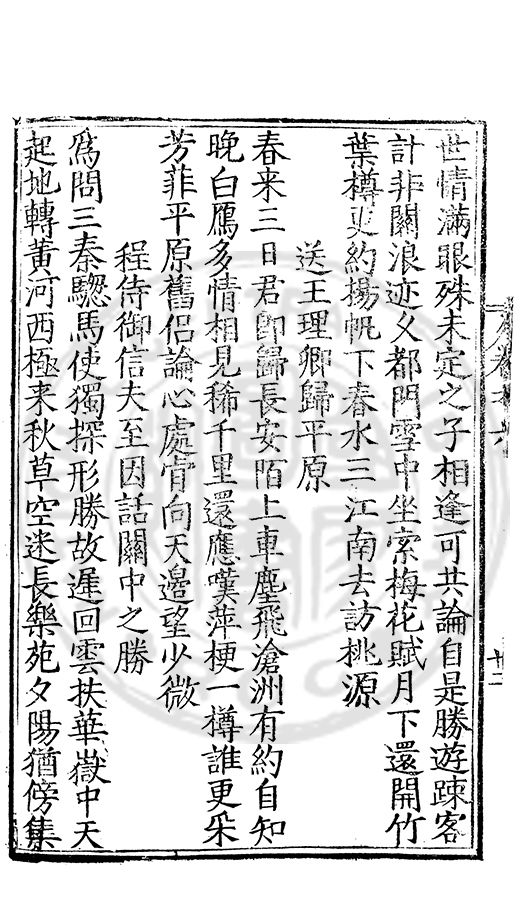 世情滿眼殊未定之子相逢可共論自是勝遊踈客
計非關浪迹久都門雪中坐索梅花賦月下還開竹
葉樽更約揚帆下春水三江南去訪桃源
送王理卿歸平原
春来三日君即歸長安陌上車塵飛滄洲有約自知
晚白鴈多情相見稀千里還應嘆萍梗一樽誰更采
芳菲平原舊侶論心處肯向天邉望少微
程侍御信夫至因話關中之勝
爲問三秦驄馬使獨探形勝故遲回雲扶華嶽中天
起地轉黄河西極来秋草空迷長樂苑夕陽猶傍集
卷
廿二